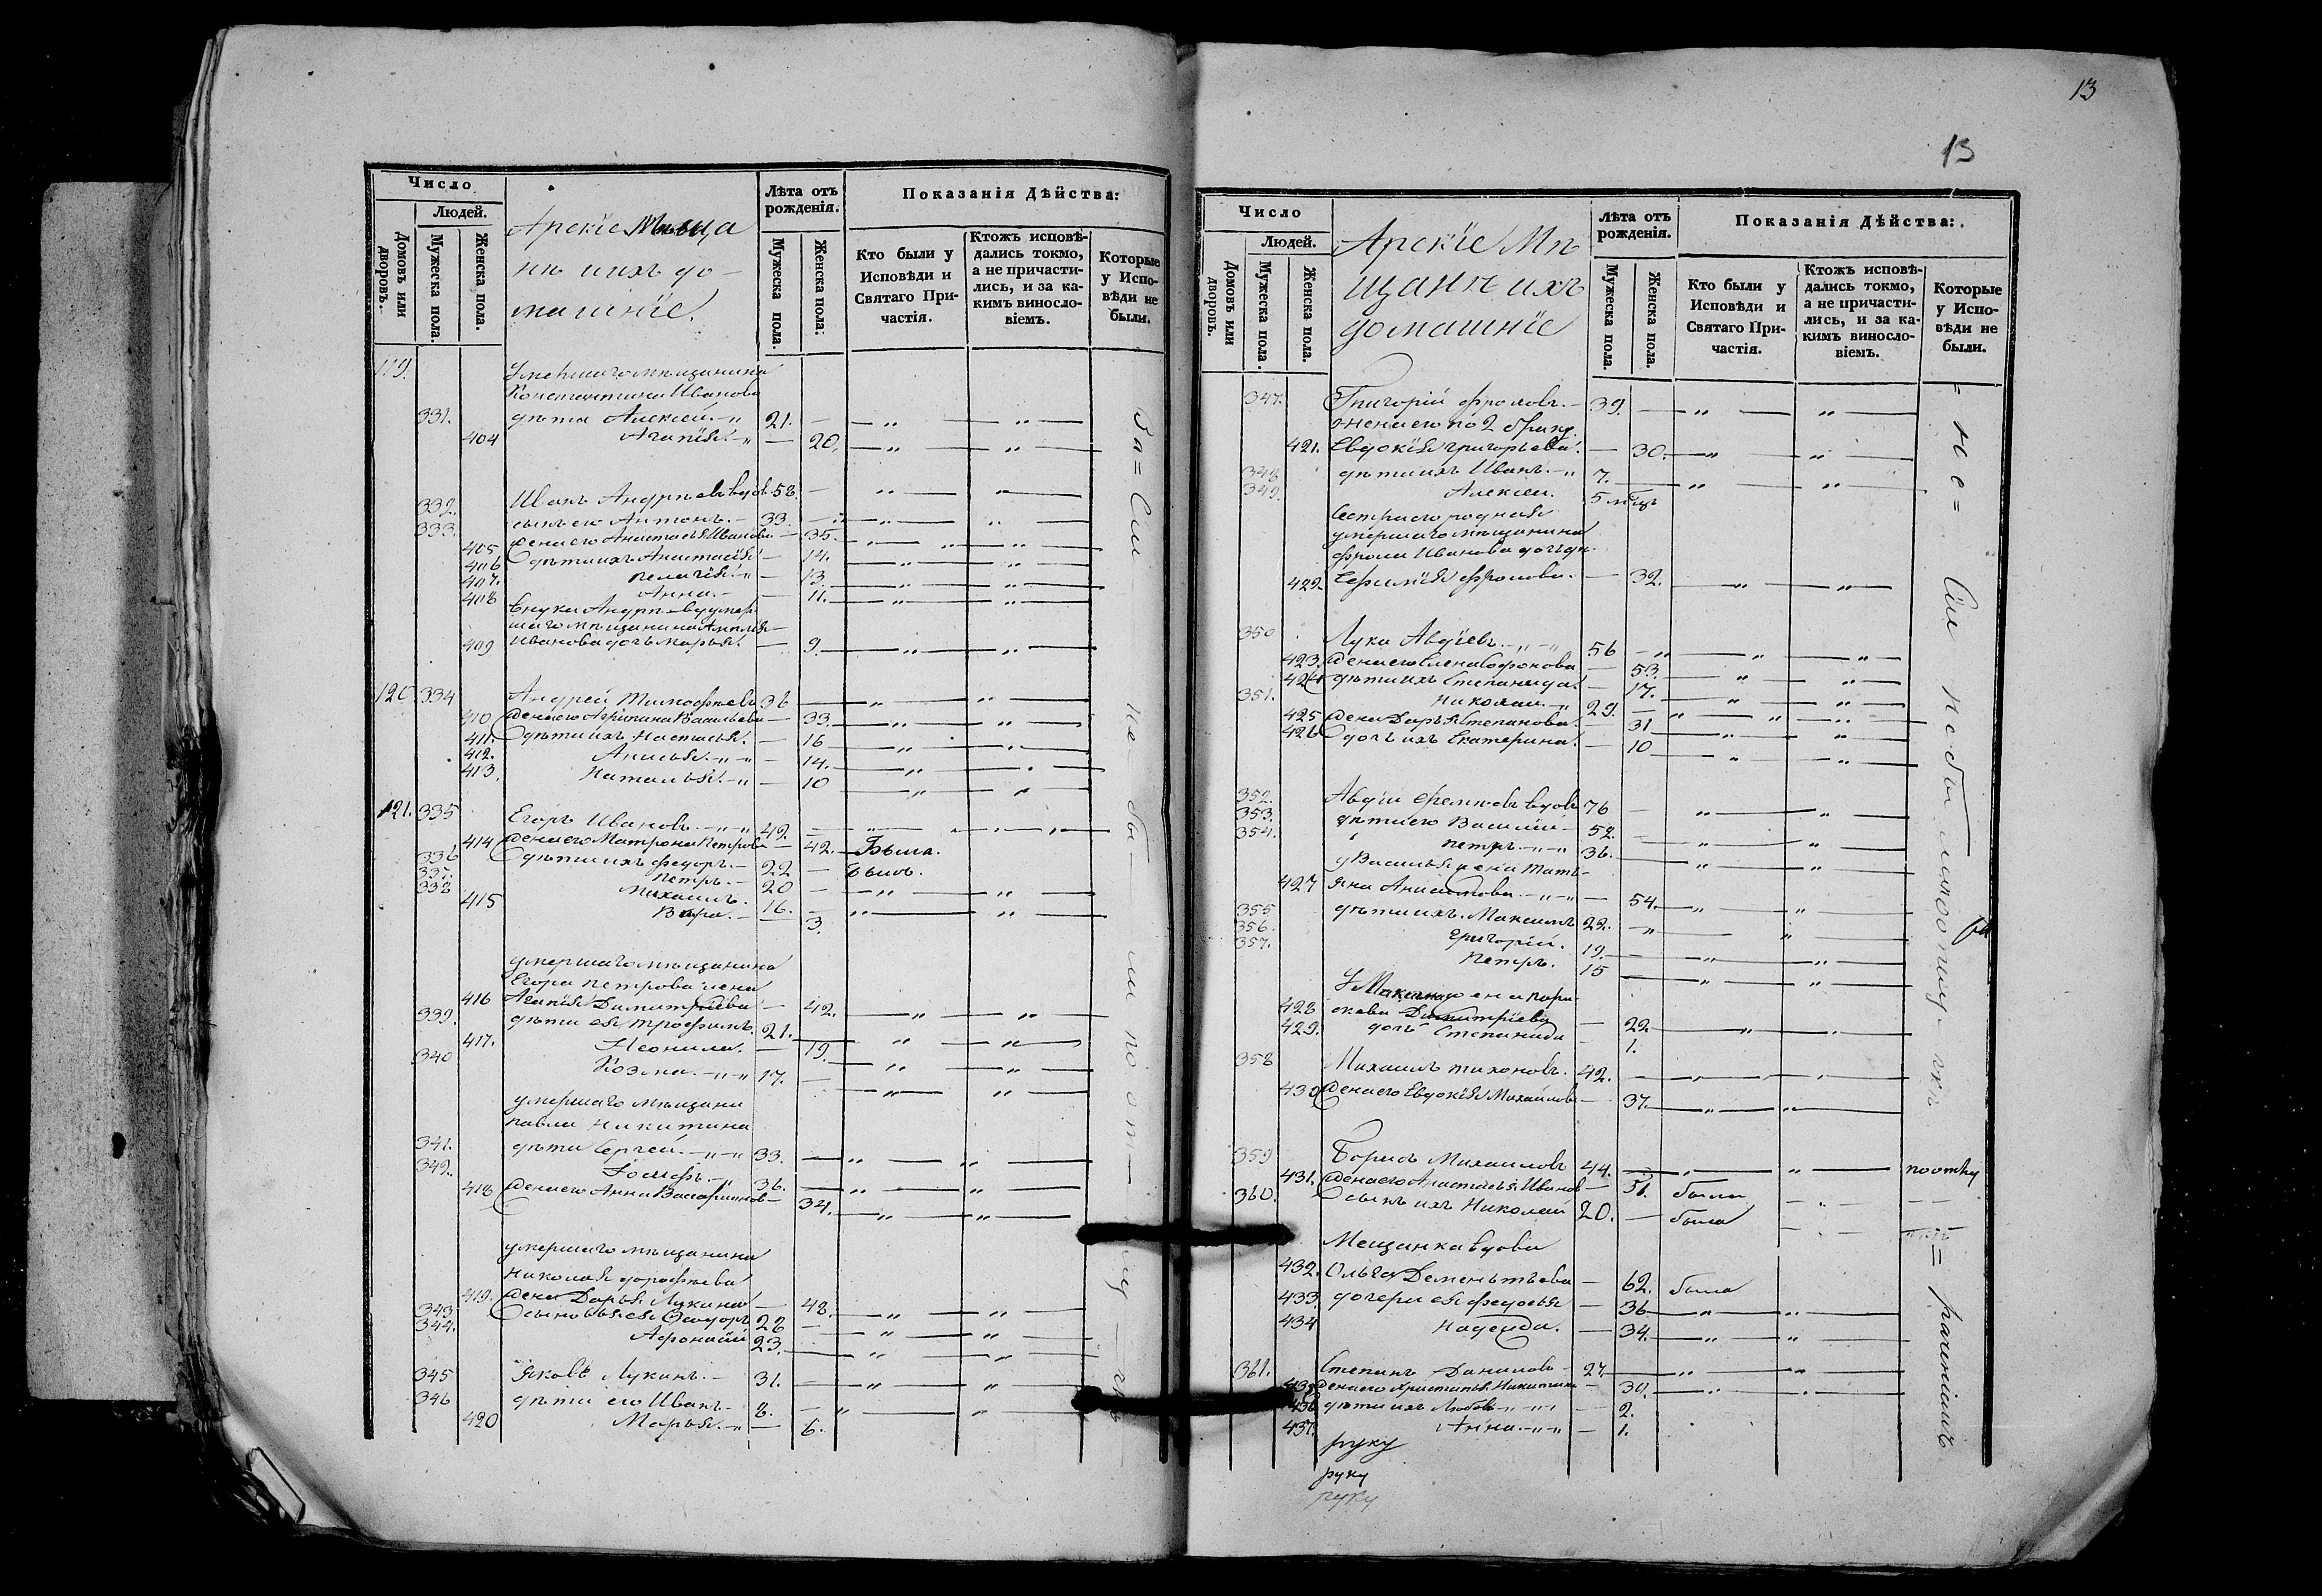 13
13
Число
Людей.
Домовъ или дворовъ.
Мужеска пола.
Женска пола.
Арскіе Мѣща
не ихъ до-
машніе.
Лѣта отъ рожденія.
Мужеска пола.
Женска пола.
Показанія Дѣйства:
Кто были у Исповѣди и Святаго Причастія.
Ктожъ исповѣдались токмо, а не причастились, и за какимъ винословіемъ.
Которые у Исповѣди не были.
119. умершаго мѣщанина
Константина Иванова
331. дѣти Алексѣй 21.
404 Агапія 20.
332. Иванъ Андреевъ вдов 58.
333. сынъ его Антонъ 33.
405 жена его Анастасья Иванова 35.
406 дѣти ихъ Анастасія 14.
407. Пелагія 13.
408 Анна 11.
внука Андрееву умер
шаго мѣщанина
409 Иванова дочь Марья 9.
120 334 Андрей Тимофѣевъ 36
410 жена его Агрипина Васильева 33.
411. дѣти ихъ Настасья 16
412. Анисья 14.
413. Наталья 10
121. 335 Егоръ Ивановъ 49.
414 жена его Матрона Петрова 42. Была.
336 дѣти ихъ Федоръ 22 былъ.
337. Петръ 20
338 Михаилъ 16.
415 Вѣра 3.
умершаго мѣщанина
Егора Петрова жена
416 Агапія Димитріева 42.
339. дѣти ея Трофимъ 21.
417. Неонила 19.
340 Козма 17.
умершаго мѣщани
Павла Никитина
341. дѣти Сергей 33.
342. Іосифъ 36.
418 жена его Анна 34.
умершаго мѣщанина
Николая Дорофѣева
419. жена Дарья Лукина 48.
343 сыновья ея Феодоръ 28
344. Афонасій 23.
345 Яковъ Лукинъ 31.
346 дѣти его Иванъ 8.
420 Марья 6.
За = Сіи не бы ли по от
Число
Людей.
Домовъ или дворовъ.
Мужеска пола.
Женска пола.
Арскіе Мѣ
щане ихъ
домашніе
Лѣта отъ рожденія.
Мужеска пола.
Женска пола.
Показанія Дѣйства:
Кто были у Исповѣди и Святаго Причастія.
Ктожъ исповѣдались токмо, а не причастились, и за какимъ винословіемъ.
Которые у Исповѣди не были.
347. Григорій Фроловъ 39.
жена его по 2 браку
421. Евдокія Григорьева 30.
348 дѣти ихъ Иванъ 7.
349. Алексѣй 5 мѣцъ
Сестра его родная
умершаго мѣщанина
Фрола Иванова дочь
422. Ефимія Фролова 32.
350 Лука Авдіевъ 56
423. жена его Елена 53.
424 дѣти ихъ Степанида 17.
351. Николай 29.
425 жена Дарья Степанова 31
426 дочь ихъ Екатерина 10
352. Авдій вдовъ 76
353. дѣти его Василій 52.
354. Петръ 36.
у Василья жена Тать-
427 яна 54.
355 дѣти ихъ Максимъ 22.
356. Григорій 19.
357. Петръ 15
У Максима жена Пара
428 скева Димитріева 22
429. дочь Степанида 1.
358 Михаилъ Тихоновъ 42.
430 жена его Евдокія Михайлова 37.
359 Борисъ Михаиловъ 44. поотлу
431. жена его Анастасья Иванов 51. была
360. сынъ ихъ Николай 20. была
Мещанка вдова
432. Ольга Дементьева 62. была
433 дочери ея Федосья 36
434 Надежда 34.
361. Степанъ Даниловъ 27.
435 жена его Никитина 30.
436 дѣти ихъ Любовь 2.
437. Анна 1.
руку
руку
руку
= не = Сіи не бы